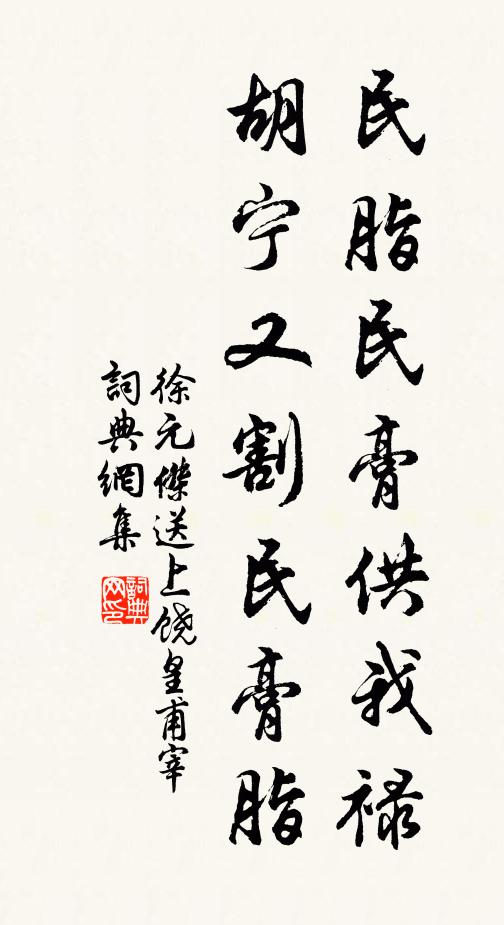 民脂民膏供我禄
胡宁又割民膏脂
徐元傑送上饶皇甫宰
詞典網集
詞典网印